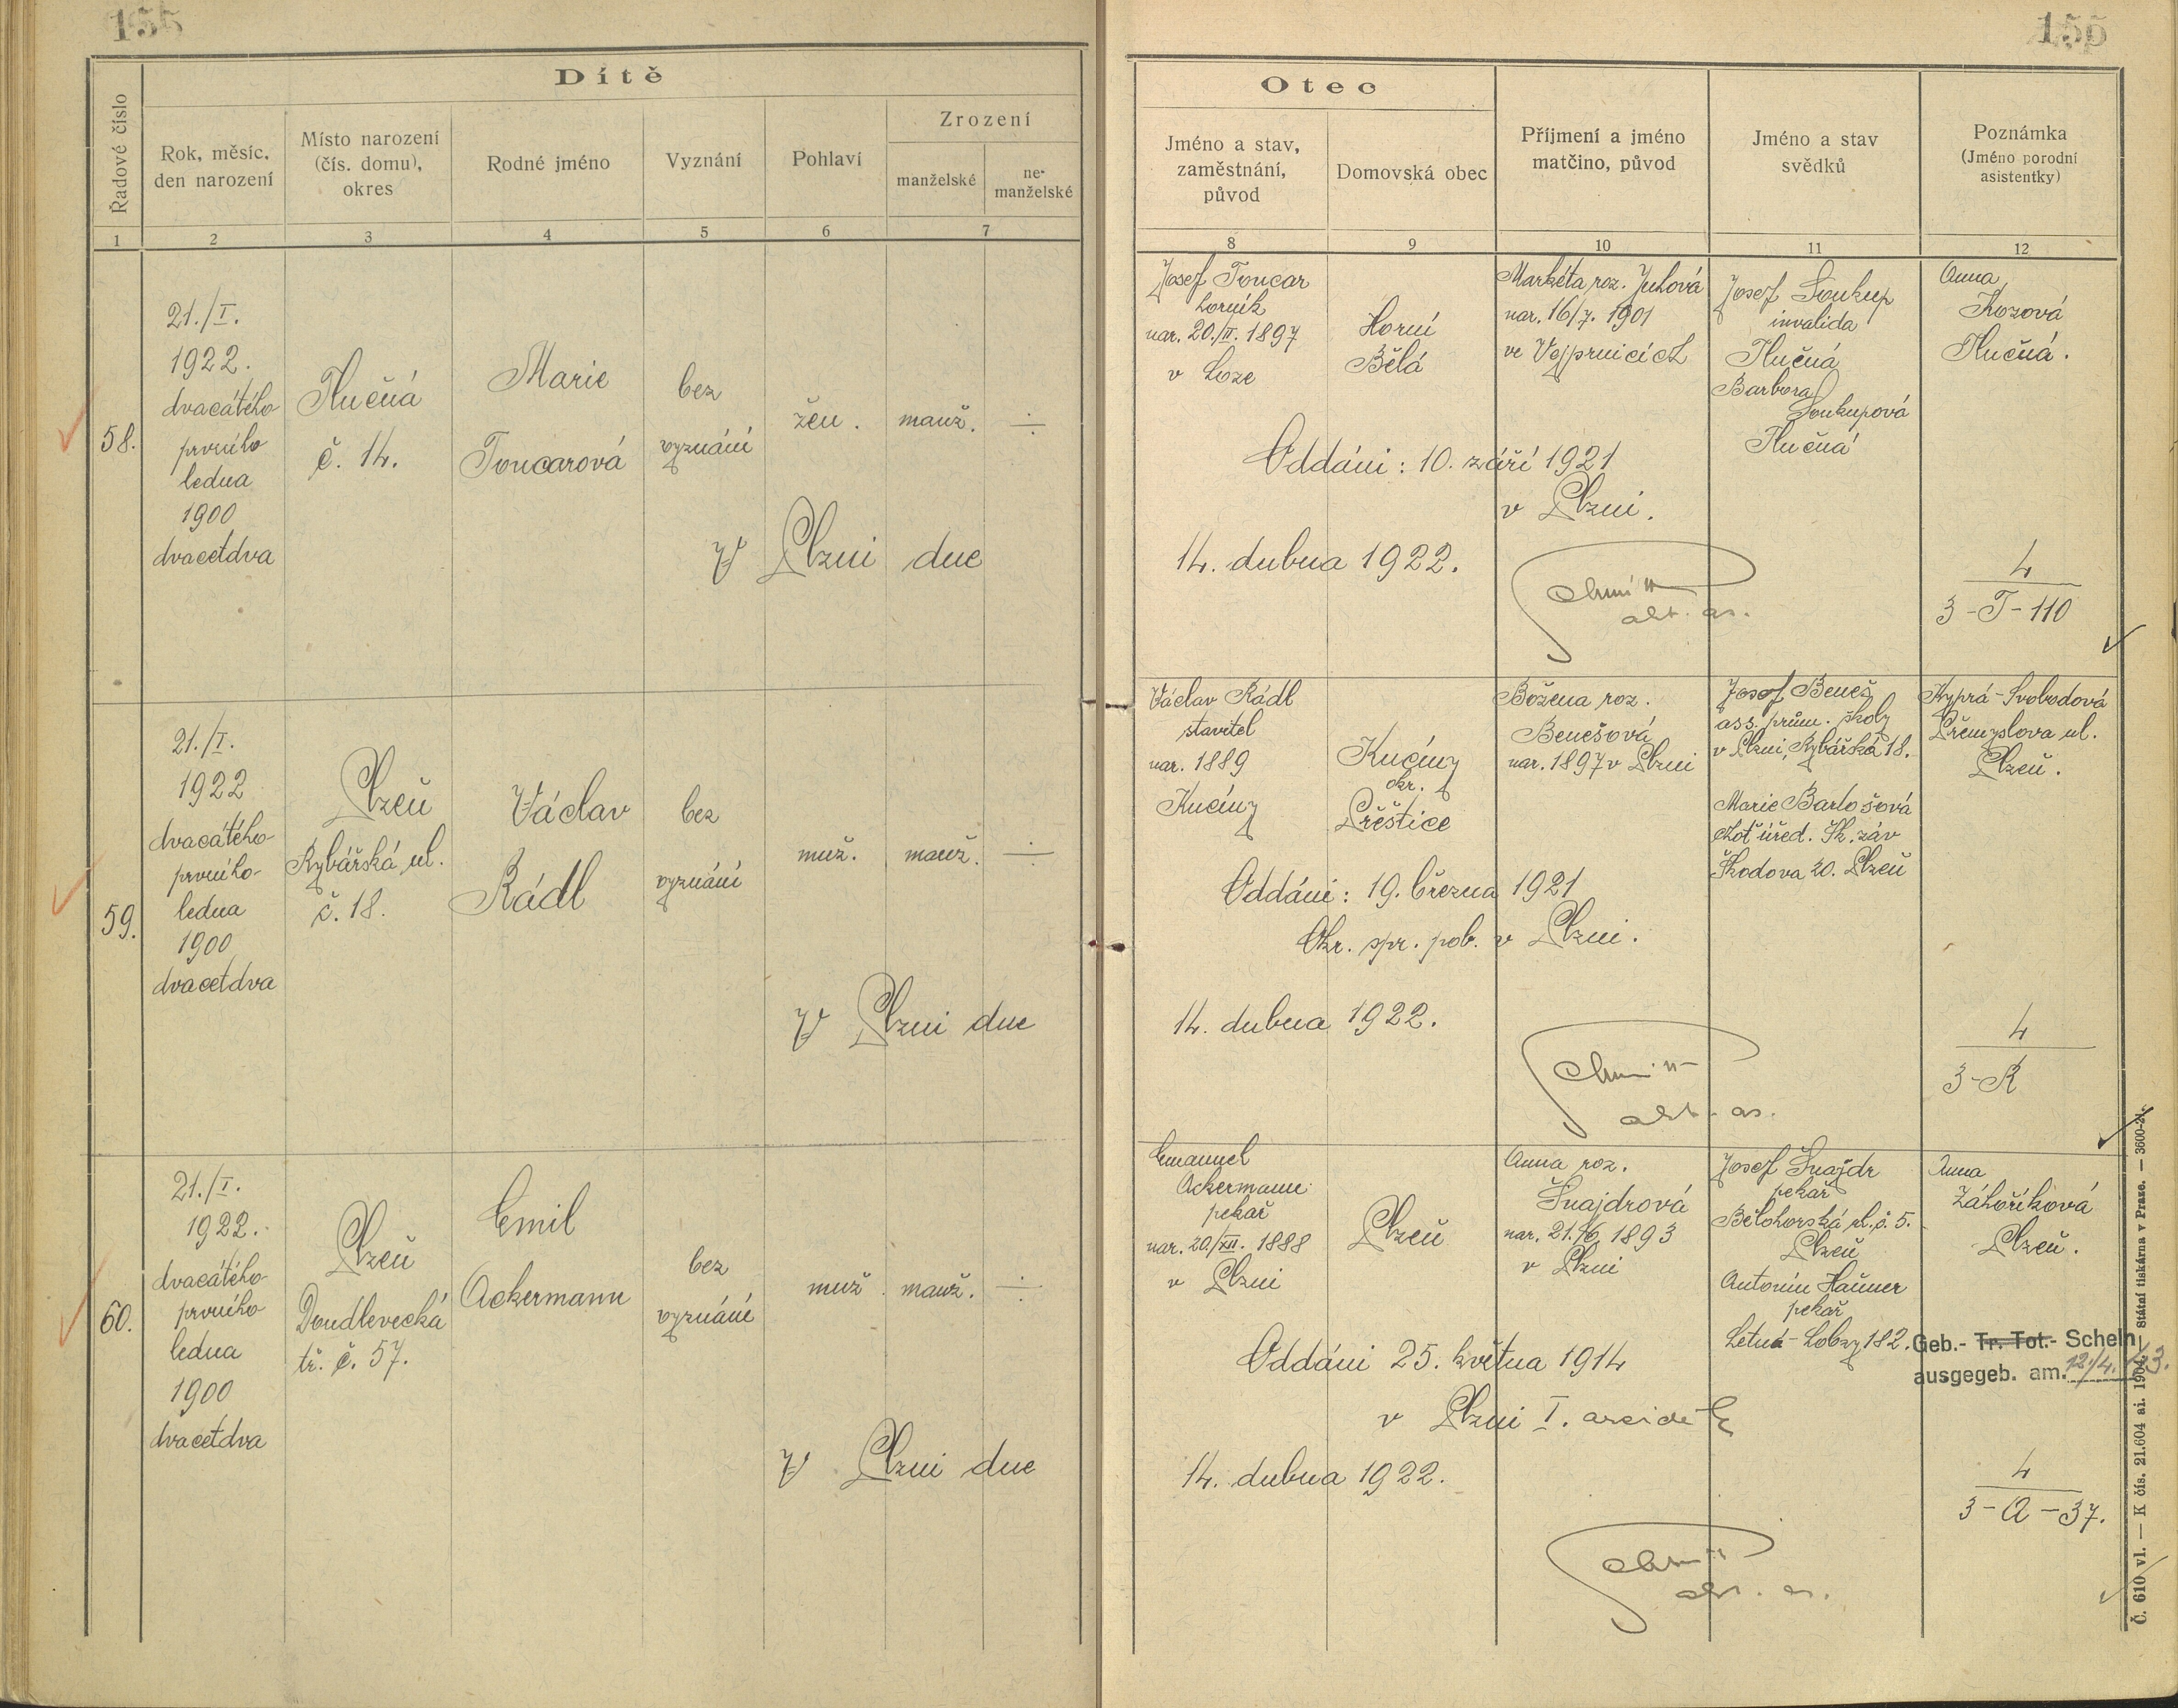 155
Dítě
Řadové číslo
Rok, měsíc, den narození
Místo narození (čís. domu), okres
Rodné jméno
Vyznání
Pohlaví
Zrození
manželské
ne-manželské
1 2 3 4 5 6 7
58.
21./I.
1922.
dvacátého
prvního
ledna
1900
dvacetdva
Tlučná
č. 14.
Marie
Toncarová
bez
vyznání
žen.
manž.
V Plzni dne
59.
21./I.
1922
dvacátého-
prvního-
ledna
1900
dvacetdva
Plzeň
Rybářská ul.
č. 18.
Václav
Rádl
bez
vyznání
muž.
manž.
V Plzni dne
60.
21./I.
1922.
dvacátého-
prvního
ledna
1900
dvacetdva
Plzeň
Doudlevecká
tř. č. 57.
Emil
Ackermann
bez
vyznání
muž
manž.
V Plzni dne
155
Otec
Jméno a stav, zaměstnání, původ
Domovská obec
Příjmení a jméno matčino, původ
Jméno a stav svědků
Poznámka
(Jméno porodní asistentky)
8 9 10 11 12
Josef Toncar
horník
nar. 20./II. 1897
v Loze
Horní
Bělá
Markéta roz. Juhová
nar. 16/7. 1901
ve Vejprnicích
Josef Soukup
invalida
Tlučná
Barbora
Soukupová
Tlučná
Anna
Kozová
Tlučná.
Oddáni: 10. září 1921
v Plzni.
14. dubna 1922.
4
3-T-110
Václav Rádl
stavitel
nar. 1889
Kucíny
Kucíny
okr.
Přeštice
Božena roz.
Benešová
nar. 1897 v Plzni
Josef Beneš
ass. prům. školy
v Plzni, Rybářská 18.
Marie Bartošová
choť úřed. Šk. záv
Škodova 20. Plzeň
Kyprá-Svobodová
Přemyslova ul.
Plzeň.
Oddáni: 19. března 1921
Okr. spr. pol. v Plzni.
14. dubna 1922.
4
3-R
Emanuel
Ackermann
pekař
nar. 20./XII. 1888
v Plzni
Plzeň
Anna roz.
Šnajdrová
nar. 21./6. 1893
v Plzni
Josef Šnajdr
pekař
Bělohorská ul. č. 5.
Plzeň
Antonín Hanner
pekař
Letná-Lobzy 182.
Anna
Záhoříková
Plzeň.
Geb.- Tr. Tot.- Schein
ausgegeb. am. 12/4.
Oddáni 25. května 1914
v Plzni I.
14. dubna 1922.
4
3-A-37.
Č. 610 vl. — K čís. 21.604 ai. 1904. Státní tiskárna v Praze. — 3600-21.